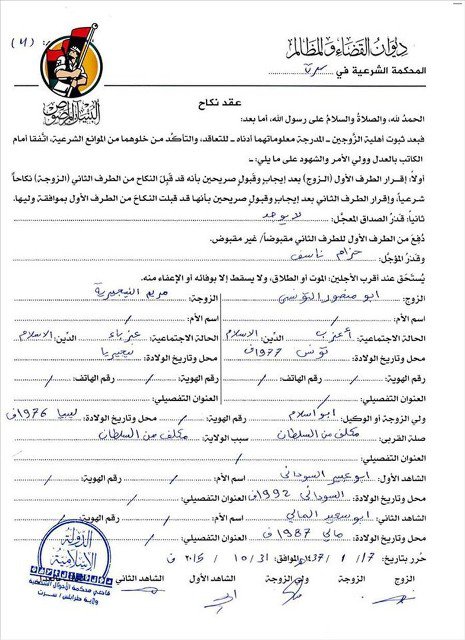 ديوان القضاء والمظالم
المحكمة الشرعية في سرت
(٧)
البنيان المرصوص
عقد نكاح
الحمدُ لله، والصلاةُ والسلامُ على رسول الله، أما بعد:
فبعد ثبوت أهلية الزَّوجين ـ المدرجة معلوماتهما أدناه ـ للتعاقد، والتأكّد من خلوهما من الموانع الشرعية، اتَّفقا أمام
الكاتب بالعدل وولي الأمر والشهود على ما يلي:
أولاً: إقـرار الطرف الأول (الـزوج) بعد إيجاب وقبولٍ صريحين بأنه قد قَبِلَ النكاح من الطرف الثاني (الزوجة) نكاحاً
شرعياً، وإقرار الطرف الثاني بعد إيجاب وقبولٍ صريحين بأنها قد قبلت النكاحَ من الطرف الأول بموافقة وليها.
ثانياً: قدْرُ الصداق المعجَّل: لا يوجد
دُفِعَ من الطرف الأول للطرف الثاني مقبوضاً/ غير مقبوض.
وقدرُ المؤجّل: حزام ناسف
يُستَحَق عند أقرب الأجلين: الموت أو الطلاق، ولا يسقط إلا بوفائه أو الإعفاء منه.
الزوج: ابو منصور التونسي الزوجة: مريم النيجيرية
اسم الأم: / اسم الأم: /
الحالة الاجتماعية: أعزب الدّين: الاسلام الحالة الاجتماعية: عزباء الدّين: الاسلام
محل وتاريخ الولادة: تونس 1977ف محل وتاريخ الولادة: نيجيريا
رقم الهوية: / رقم الهاتف: / رقم الهوية: / رقم الهاتف: /
العنوان التفصيلي: / العنوان التفصيلي: /
ولي الزوجة أو الوكيل: ابو اسلام رقم الهوية: / محل وتاريخ الولادة: ليبيا 1976ف
صلة القربى: مكلف من السلطان سبب الولاية: مكلف من السلطان
العنوان التفصيلي: /
الشاهد الأول: ابو عيسى السوداني اسم الأم: / رقم الهوية: /
محل وتاريخ الولادة: السودان 1992ف العنوان التفصيلي: /
الشاهد الثاني: ابو سعيد المالي اسم الأم: / رقم الهوية: /
محل وتاريخ الولادة: مالي 1987ف العنوان التفصيلي: /
حُرر بتاريخ: 17 / 1 / 1437 الموافق: 31 / 10 / 2015 ف
الزوج الزوجة ولي الزوجة الشاهد الأول الشاهد الثاني
الدولة
الإسلامية
قاضي محكمة الأحوال الشخصية
ولاية طرابلس / سرت